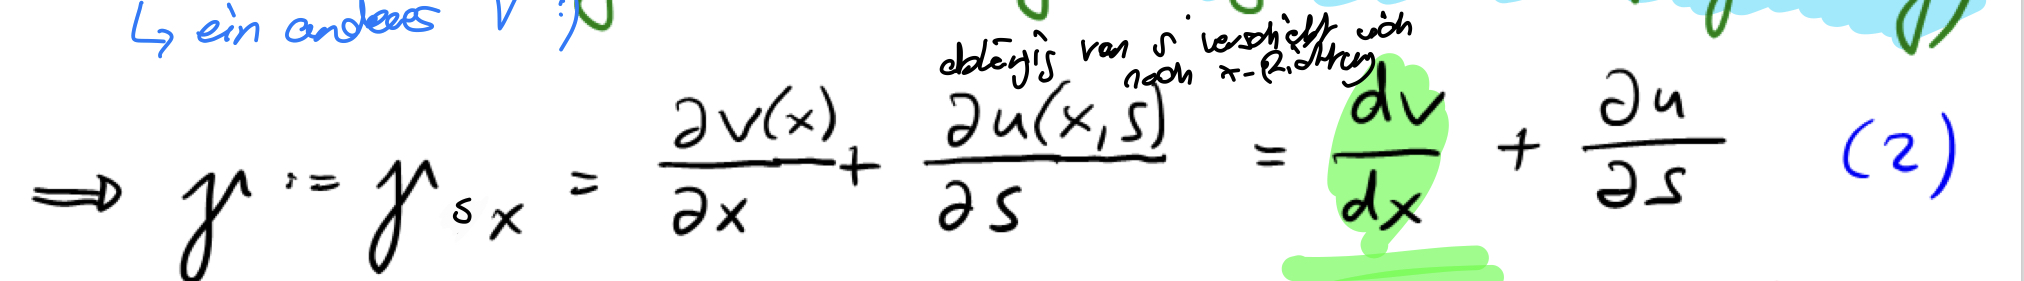 ↳ ein anderes V :)
abhängig von s verschiebt sich
nach x-Richtung
⟹ γ := γ_sx = ∂v(x)/∂x + ∂u(x,s)/∂s = dv/dx + ∂u/∂s (2)